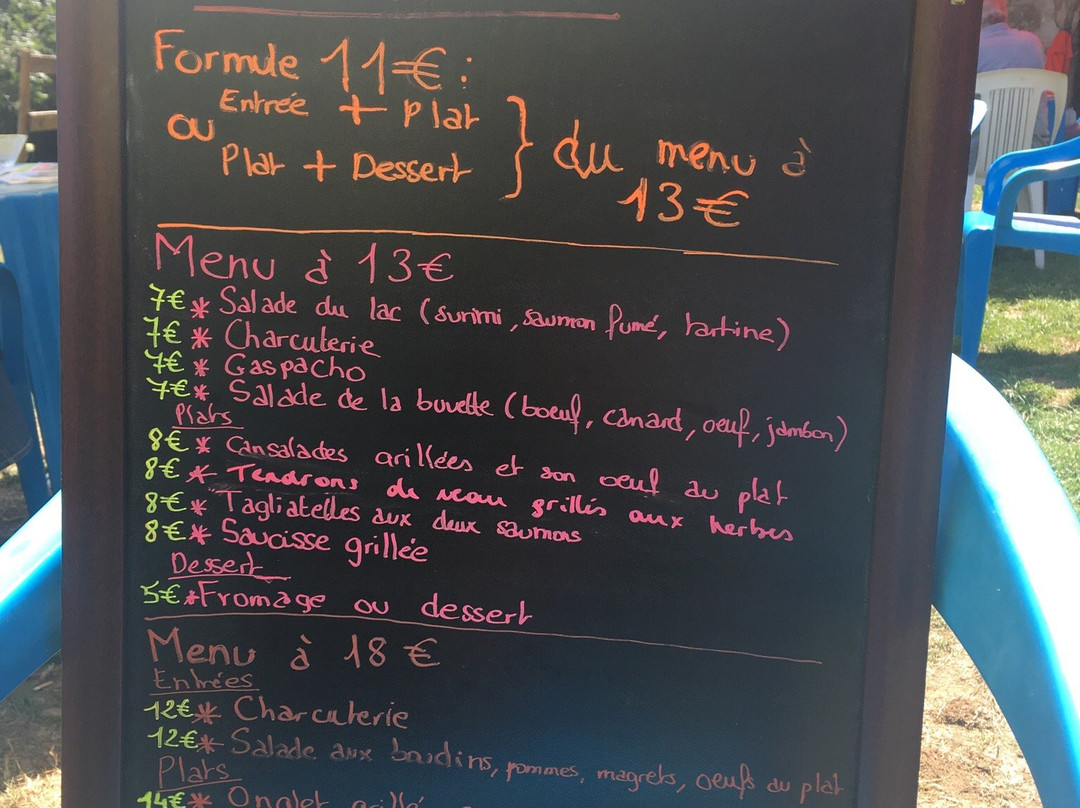 Formule 11€ :
Entrée + Plat
ou
Plat + Dessert
} du menu à
13€
Menu à 13€
7€ * Salade du lac (surimi, saumon fumé, tartine)
7€ * Charcuterie
7€ * Gaspacho
7€ * Salade de la buvette (boeuf, canard, oeuf, jambon)
Plats
8€ * Cansalades grillées et son oeuf au plat
8€ * Tendrons de veau grillés aux herbes
8€ * Tagliatelles aux deux saumons
8€ * Saucisse grillée
Dessert
5€ * Fromage ou dessert
Menu à 18 €
Entrées
12€ * Charcuterie
12€ * Salade aux boudins, pommes, magrets, oeufs au plat
Plats
14€ * Onglet grillé